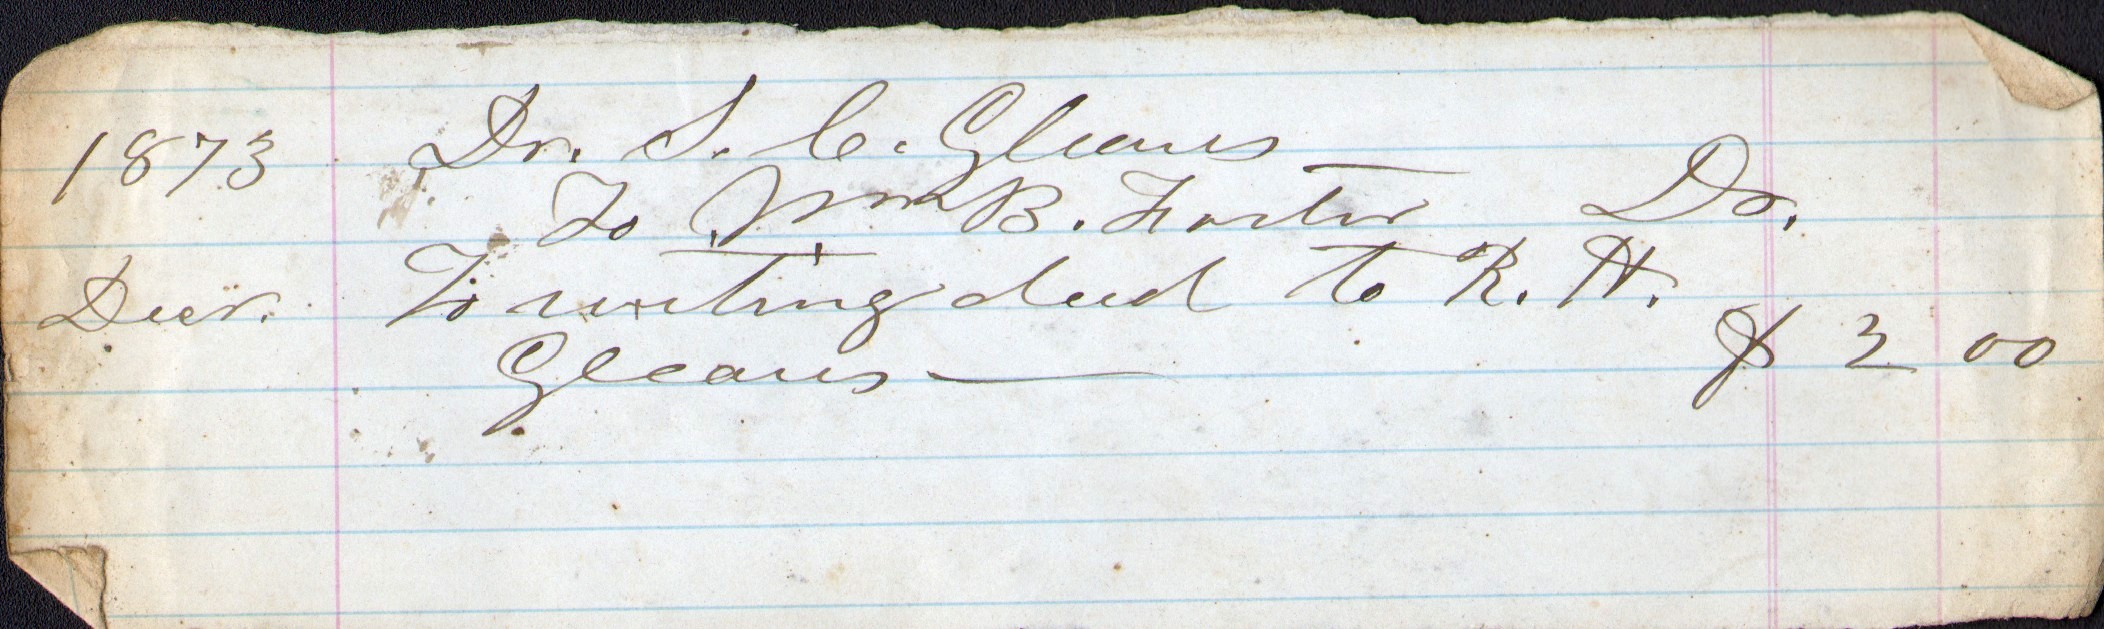 1873 Dr. S. C. Gleaves
To Wm B. Foster Dr.
Decr. To writing deed to R. H.
Gleaves — $ 2 00